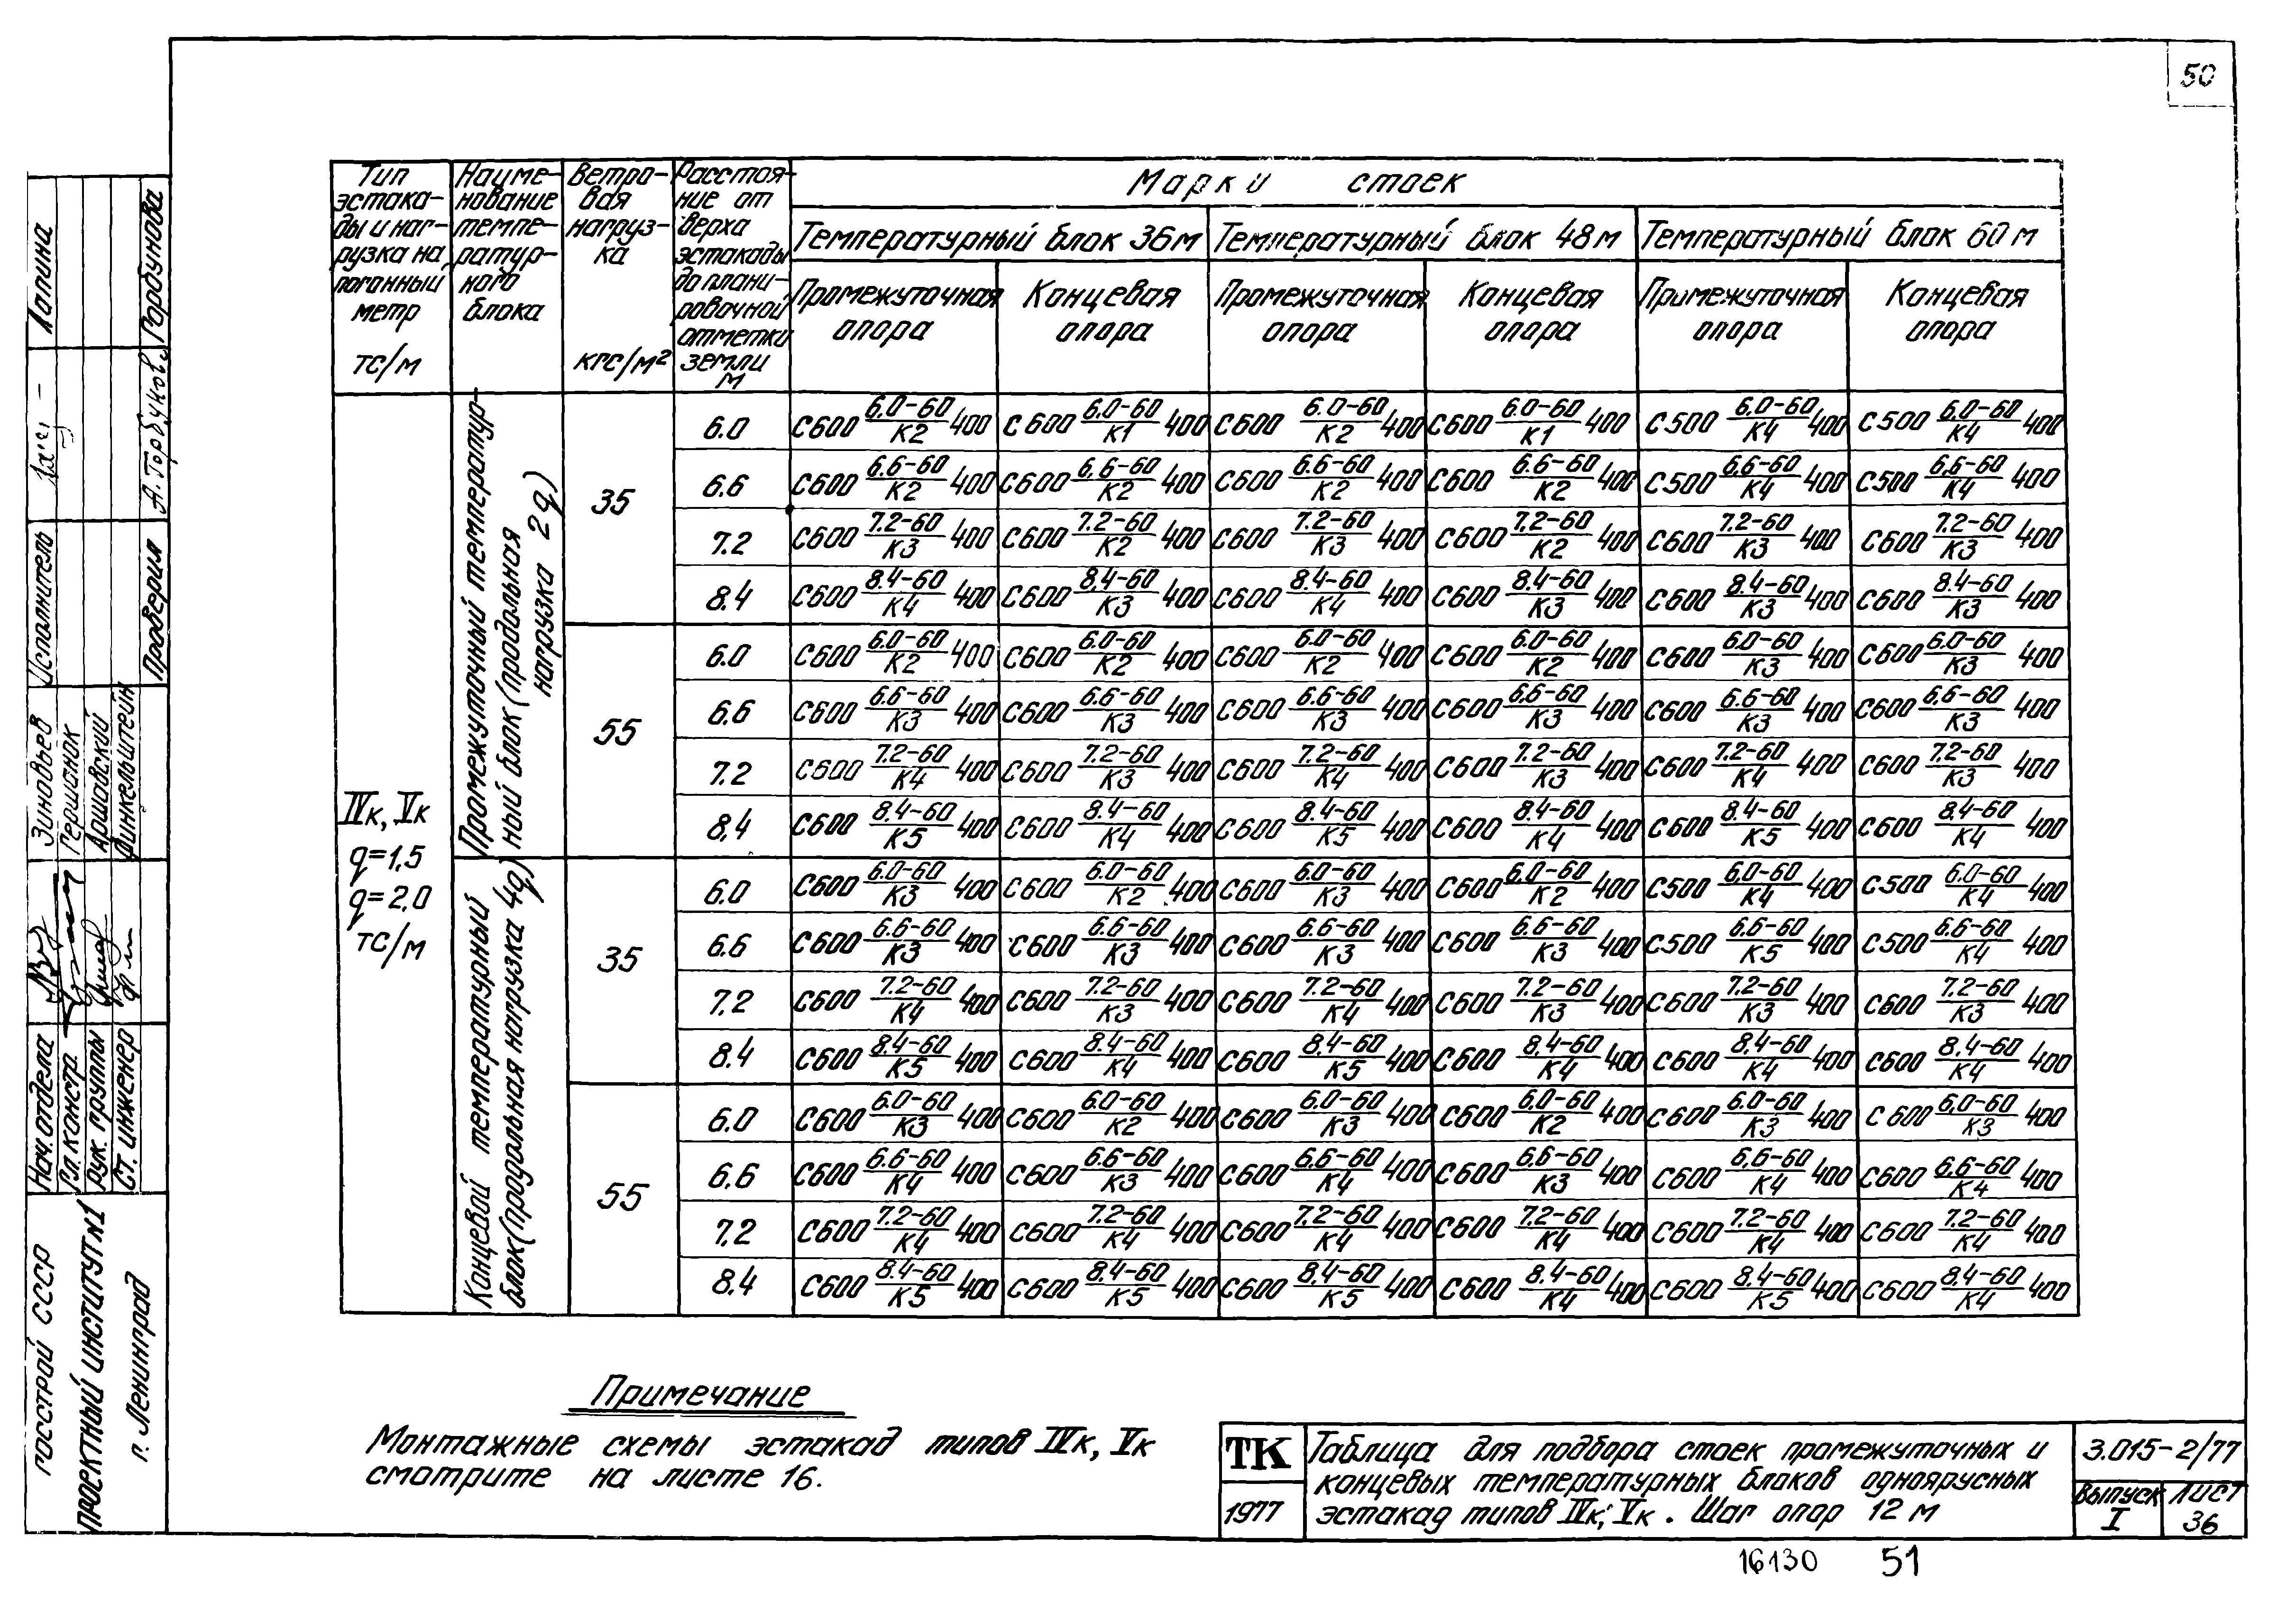 50
Тип эстакады и нагрузка на погонный метр тс/м
Наименование температурного блока
Ветровая нагрузка кгс/м²
Расстояние от верха эстакады до планировочной отметки земли м
Марки стоек
Температурный блок 36м Температурный блок 48м Температурный блок 60м
Промежуточная опора Концевая опора Промежуточная опора Концевая опора Промежуточная опора Концевая опора
IVк, Vк
q=1,5
q=2,0
тс/м
Промежуточный температурный блок (продольная нагрузка 2q)
35
6.0 С600 6.0-60/К2 400 С600 6.0-60/К1 400 С600 6.0-60/К2 400 С600 6.0-60/К1 400 С500 6.0-60/К4 400 С500 6.0-60/К4 400
6.6 С600 6.6-60/К2 400 С600 6.6-60/К2 400 С600 6.6-60/К2 400 С600 6.6-60/К2 400 С500 6.6-60/К4 400 С500 6.6-60/К4 400
7.2 С600 7.2-60/К3 400 С600 7.2-60/К2 400 С600 7.2-60/К3 400 С600 7.2-60/К2 400 С600 7.2-60/К3 400 С600 7.2-60/К3 400
8.4 С600 8.4-60/К4 400 С600 8.4-60/К3 400 С600 8.4-60/К4 400 С600 8.4-60/К3 400 С600 8.4-60/К3 400 С600 8.4-60/К3 400
55
6.0 С600 6.0-60/К2 400 С600 6.0-60/К2 400 С600 6.0-60/К2 400 С600 6.0-60/К2 400 С600 6.0-60/К3 400 С600 6.0-60/К3 400
6.6 С600 6.6-60/К3 400 С600 6.6-60/К3 400 С600 6.6-60/К3 400 С600 6.6-60/К3 400 С600 6.6-60/К3 400 С600 6.6-60/К3 400
7.2 С600 7.2-60/К4 400 С600 7.2-60/К3 400 С600 7.2-60/К4 400 С600 7.2-60/К3 400 С600 7.2-60/К4 400 С600 7.2-60/К3 400
8,4 С600 8.4-60/К5 400 С600 8.4-60/К4 400 С600 8.4-60/К5 400 С600 8.4-60/К4 400 С600 8.4-60/К5 400 С600 8.4-60/К4 400
Концевой температурный блок (продольная нагрузка 4q)
35
6.0 С600 6.0-60/К3 400 С600 6.0-60/К2 400 С600 6.0-60/К3 400 С600 6.0-60/К2 400 С500 6.0-60/К4 400 С500 6.0-60/К4 400
6.6 С600 6.6-60/К3 400 С600 6.6-60/К3 400 С600 6.6-60/К3 400 С600 6.6-60/К3 400 С500 6.6-60/К5 400 С500 6.6-60/К4 400
7,2 С600 7.2-60/К4 400 С600 7.2-60/К3 400 С600 7.2-60/К4 400 С600 7.2-60/К3 400 С600 7.2-60/К3 400 С600 7.2-60/К3 400
8.4 С600 8.4-60/К5 400 С600 8.4-60/К4 400 С600 8.4-60/К5 400 С600 8.4-60/К4 400 С600 8.4-60/К4 400 С600 8.4-60/К4 400
55
6.0 С600 6.0-60/К3 400 С600 6.0-60/К2 400 С600 6.0-60/К3 400 С600 6.0-60/К2 400 С600 6.0-60/К3 400 С600 6.0-60/К3 400
6.6 С600 6.6-60/К4 400 С600 6.6-60/К3 400 С600 6.6-60/К4 400 С600 6.6-60/К3 400 С600 6.6-60/К4 400 С600 6.6-60/К4 400
7,2 С600 7.2-60/К4 400 С600 7.2-60/К4 400 С600 7.2-60/К4 400 С600 7.2-60/К4 400 С600 7.2-60/К4 400 С600 7.2-60/К4 400
8,4 С600 8.4-60/К5 400 С600 8.4-60/К5 400 С600 8.4-60/К5 400 С600 8.4-60/К4 400 С600 8.4-60/К5 400 С600 8.4-60/К4 400
Примечание
Монтажные схемы эстакад типов IVк, Vк
смотрите на листе 16.
ТК
1977
Таблица для подбора стоек промежуточных и
концевых температурных блоков одноярусных
эстакад типов IVк, Vк. Шаг опор 12 м
3.015-2/77
Выпуск I
Лист 36
16130 51
Госстрой СССР
Проектный институт №1
г. Ленинград
Нач. отдела Зиновьев
Гл. констр. Гершанок
Рук. группы Аршавский
Ст. инженер Финкельштейн
Исполнитель Лапина
Проверил А. Горбунов Горбунова